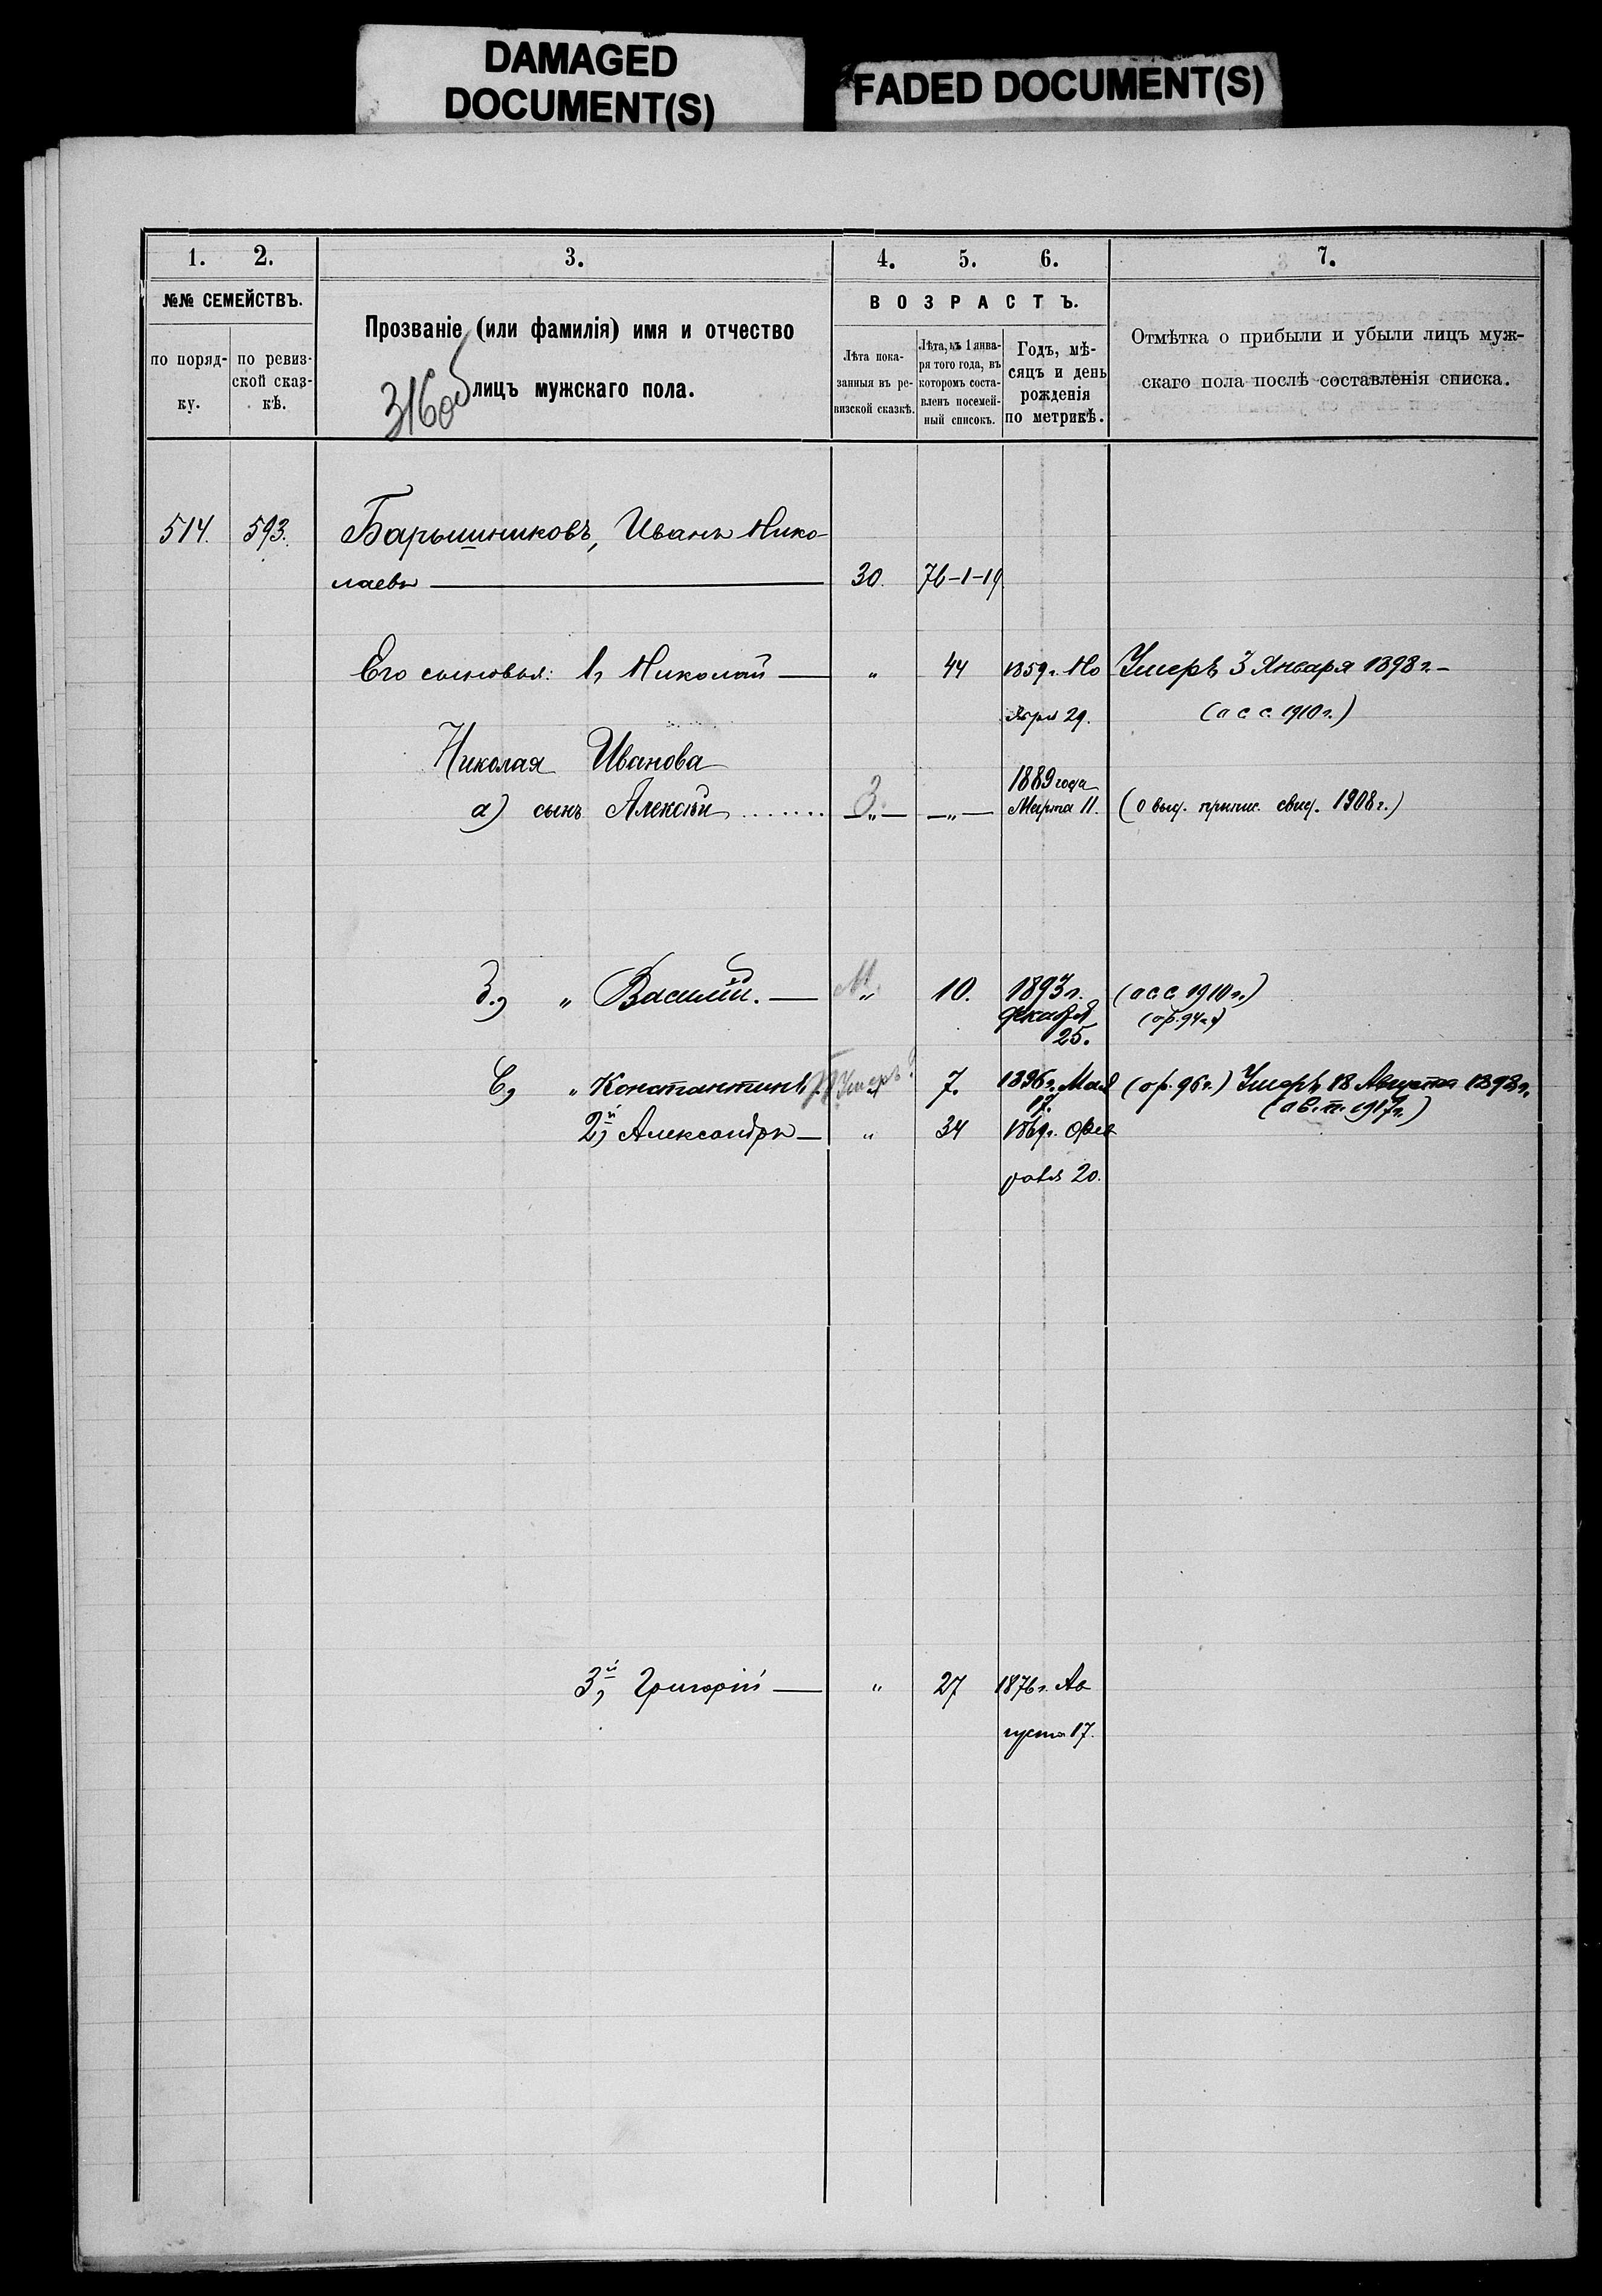 DAMAGED
DOCUMENT(S)
FADED DOCUMENT(S)
1. 2. 3. 4. 5. 6. 7.
№№ СЕМЕЙСТВЪ.
по поряд-
ку.
по ревиз-
ской сказ-
кѣ.
Прозваніе (или фамилія) имя и отчество
лицъ мужскаго пола.
316об
ВОЗРАСТЪ.
Лѣта пока-
занныя въ ре-
визской сказкѣ.
Лѣта, къ 1 янва-
ря того года, въ
которомъ соста-
вленъ посемей-
ный списокъ.
Годъ, мѣ-
сяцъ и день
рожденія
по метрикѣ.
Отмѣтка о прибыли и убыли лицъ муж-
скаго пола послѣ составленія списка.
514. 593. Барышниковъ, Иванъ Нико-
лаевъ 30. 76-1-19
Его сыновья: 1, Николай „ 44 1859 г. Но Умеръ 3 Января 1898 г.
ября 29. (а с с. 1910 г.)
Николая Иванова
а) сынъ Алексѣй „ „ 1889 года
Марта 11. (о выд. припис. свид. 1908 г.)
„ Василій. „ 10. 1893 г. (а с с. 1910 г.)
декабря (ор. 94 г.)
25.
„ Константинъ Умеръ 7. 1896 г. Мая (ор. 96 г.) Умеръ 18 Августа 1898 г.
17. (а в. п. 1917 г.)
2й, Александръ „ 34 1869 г. Фев
раля 20.
3й, Григорій „ 27 1876 г. Ав
густа 17.